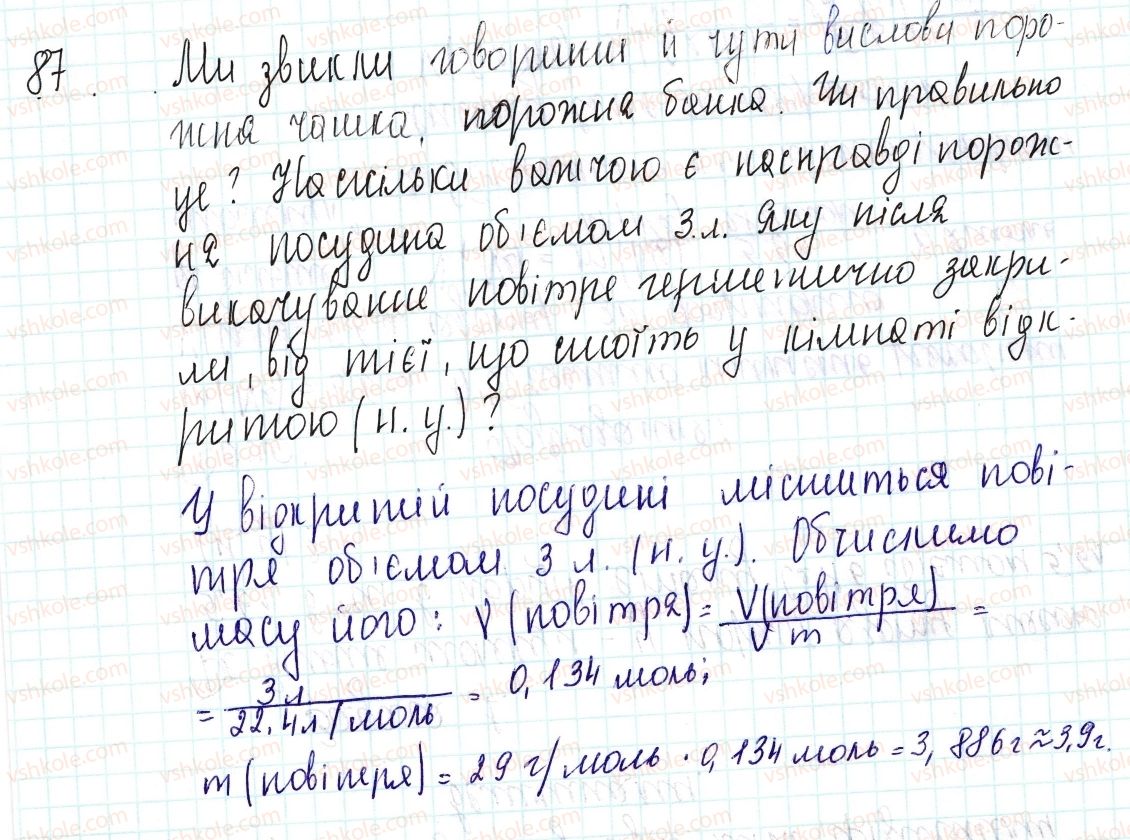 87 Ми звикли говорити й чути вислови поро-
жня чашка, порожня банка. Чи правильно
це? Наскільки важчою є насправді порож-
ня посудина об'ємом 3 л. Яку після
викачування повітря герметично закри-
ли, від тієї, що стоїть у кімнаті відк-
ритою (н. у.)?
У відкритій посудині міститься пові-
тря об'ємом 3 л. (н. у.). Обчислимо
масу його: V (повітря) = V(повітря) / V m =
= 3 л / 22,4л/моль = 0,134 моль;
m (повітря) = 29 г/моль · 0,134 моль = 3,886г ≈ 3,9г.